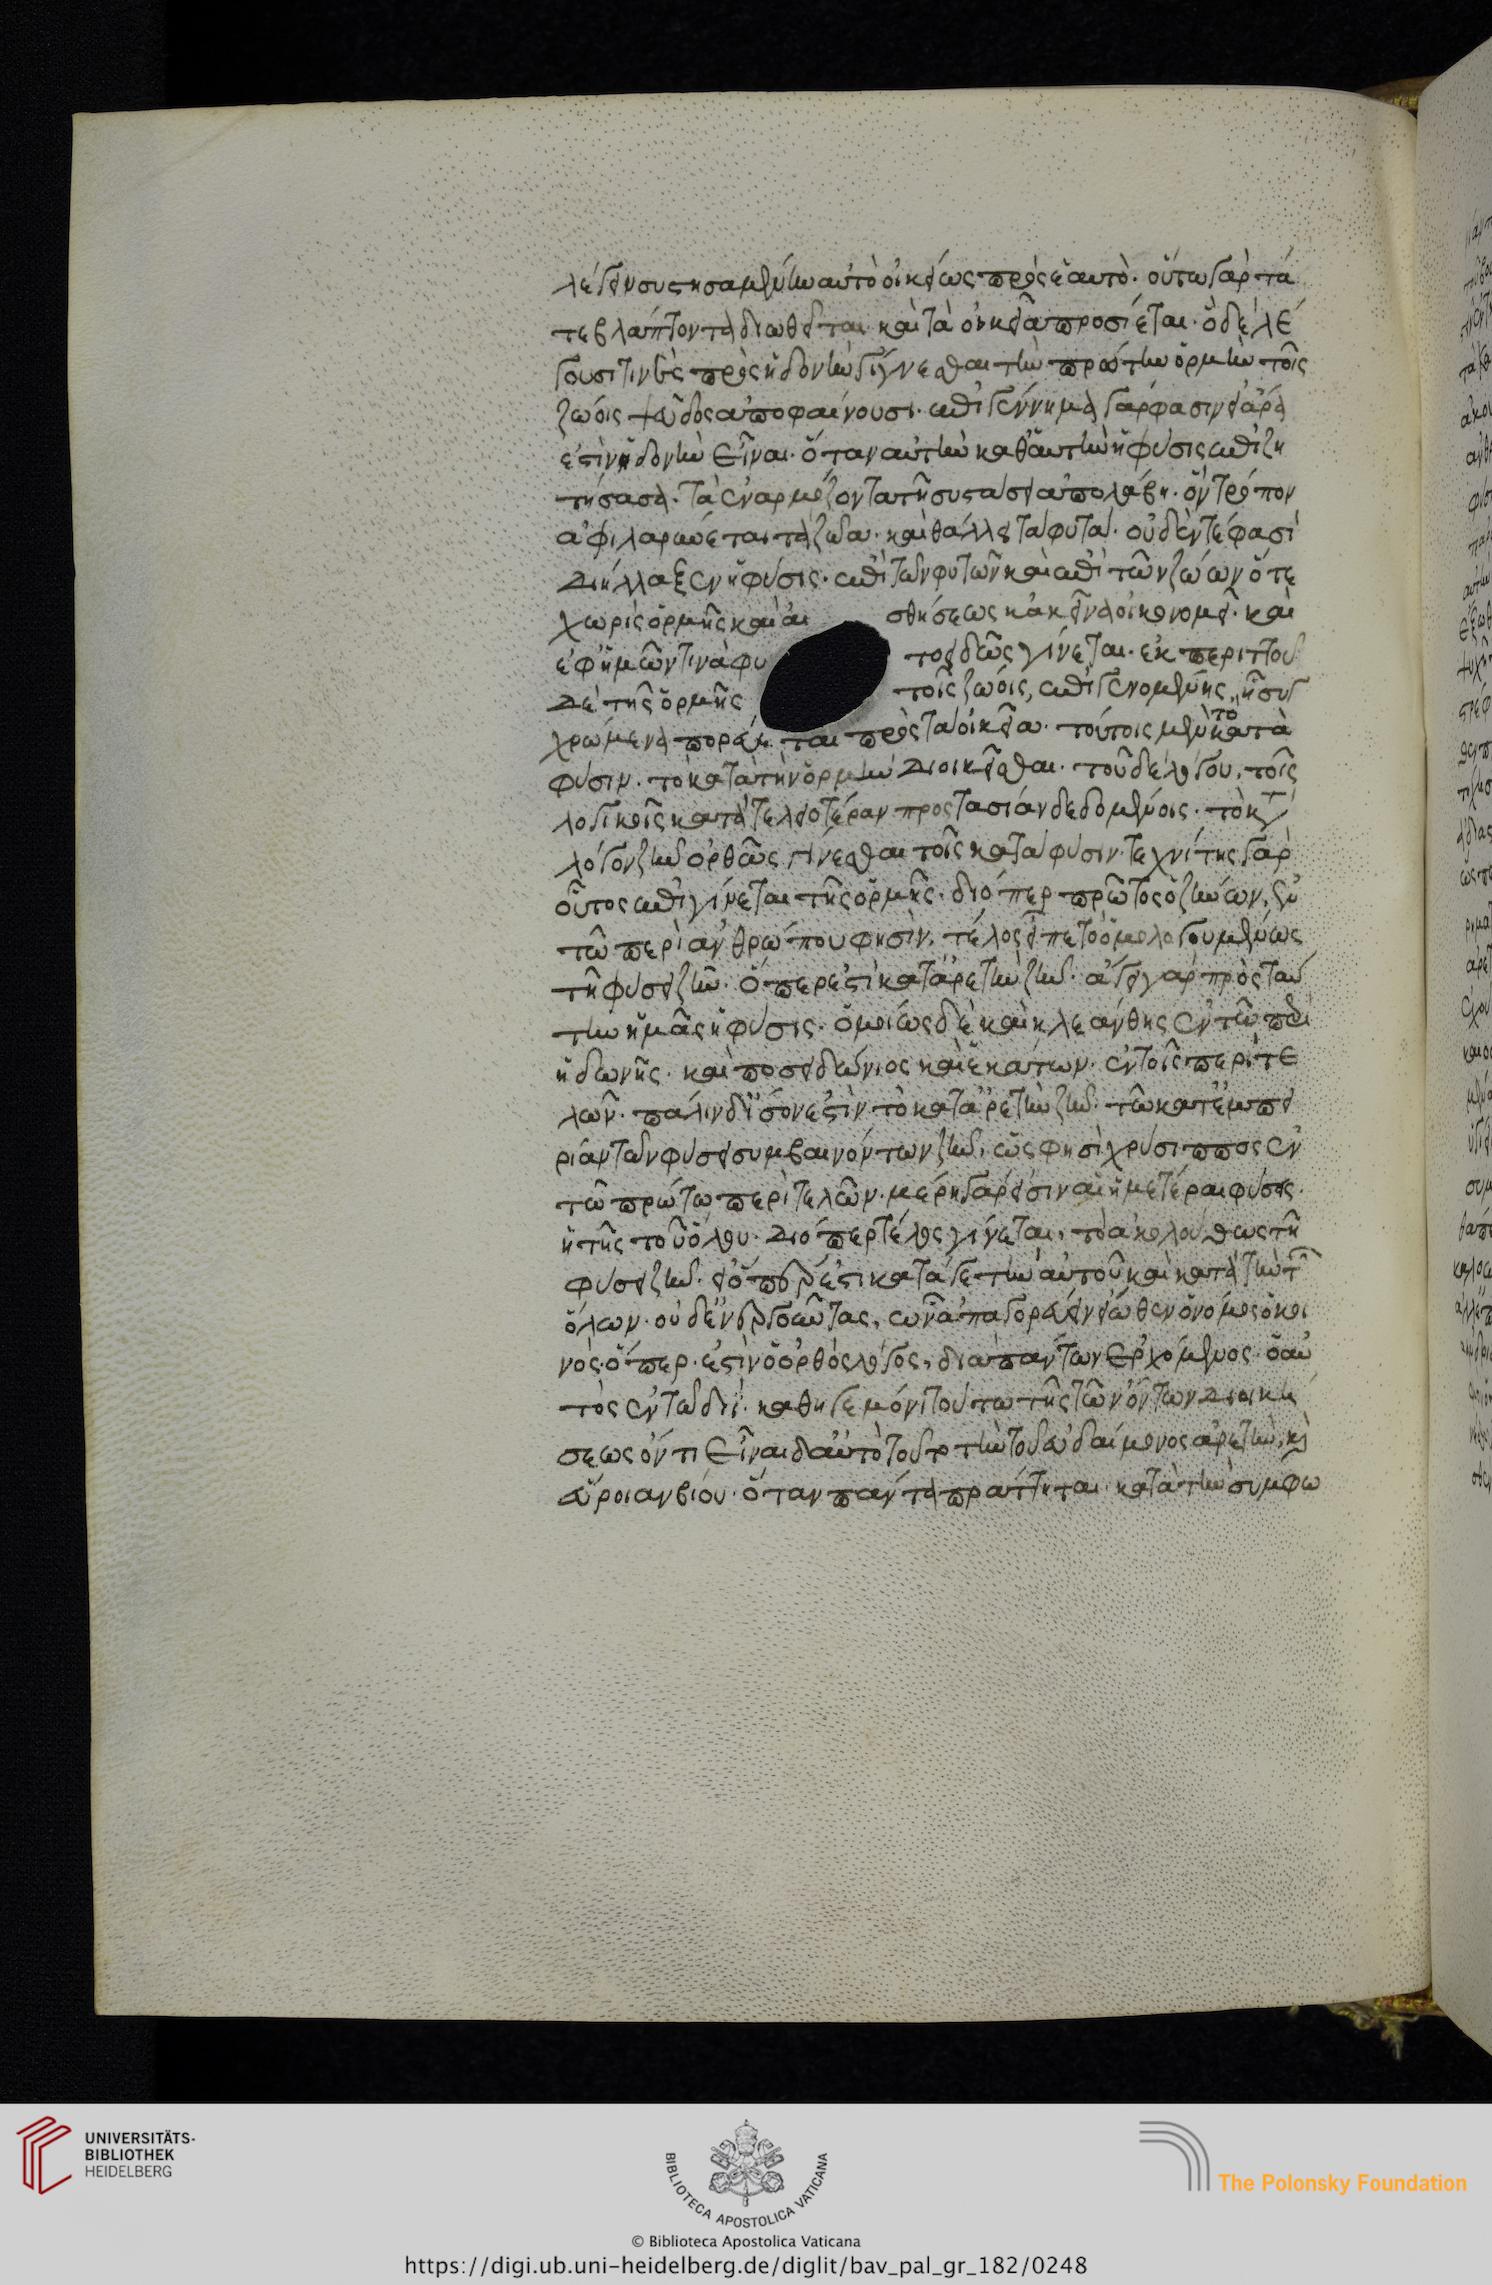 λέγειν συστησαμένην αὐτὸ οἰκείως πρὸς ἑαυτό· οὕτω γὰρ τά
τε βλάπτοντα διωθεῖται καὶ τὰ οἰκεῖα προσίεται· ὃ δὲ λέ
γουσί τινες πρὸς ἡδονὴν γίγνεσθαι τὴν πρώτην ὁρμὴν τοῖς
ζώοις ψεῦδος ἀποφαίνουσι· ἐπιγέννημα γάρ φασιν εἰ ἄρα
ἐστὶν ἡδονὴν εἶναι· ὅταν αὐτὴν καθ' αὑτὴν ἡ φύσις ἐπιζη
τήσασα· τὰ ἐναρμόζοντα τῇ συστάσει ἀπολάβη· ὃν τρόπον
ἀφιλαρύεται τὰ ζῶα· καὶ θάλλει τὰ φυτά· οὐδέν τέ φασὶ
διήλλαξεν ἡ φύσις· ἐπὶ τῶν φυτῶν καὶ ἐπὶ τῶν ζώων ὅτε
χωρὶς ὁρμῆς καὶ αἰ σθήσεως κἀκεῖνα οἰκονομεῖ· καὶ
ἐφ' ἡμῶν τινὰ φυ τοειδῶς γίνεται· ἐκ περιττοῦ
δὲ τῆς ὁρμῆς τοῖς ζώοις, ἐπιγενομένης, ᾗ συγ
χρώμενα πορεύεται πρὸς τὰ οἰκεῖα· τούτοις μὲν τὸ κατὰ
φύσιν· τὸ κατὰ τὴν ὁρμὴν διοικεῖσθαι· τοῦ δὲ λόγου, τοῖς
λογικοῖς κατὰ τελειοτέραν προστασίαν δεδομένοις· τὸ κατὰ
λόγον ζῆν ὀρθῶς γίνεσθαι τοῖς κατὰ φύσιν· τεχνίτης γὰρ
οὗτος ἐπιγίνεται τῆς ὁρμῆς· διόπερ πρῶτος ὁ ζήνων, ἐν
τῷ περὶ ἀνθρώπου φησὶν, τέλος εἶπε τὸ ὁμολογουμένως
τῇ φύσει ζῆν· ὅπερ ἐστὶ κατ' ἀρετὴν ζῆν· ἄγει γὰρ πρὸς ταύ
την ἡμᾶς ἡ φύσις· ὁμοίως δὲ καὶ κλεάνθης ἐν τῷ περὶ
ἡδωνῆς· καὶ ποσειδώνιος καὶ ἑκάτων· ἐν τοῖς περὶ τε
λῶν· πάλιν δ' ἴσον ἐστὶν τὸ κατ' ἀρετὴν ζῆν· τῷ κατ' ἐμπει
ρίαν τῶν φύσει συμβαινόντων ζῆν, ὥς φησὶ χρύσιππος ἐν
τῷ πρώτω περὶ τελῶν· μέρη γάρ εἰσιν αἱ ἡμέτεραι φύσεις·
ἢ τῆς τοῦ ὅλου· διόπερ τέλος γίνεται, τὸ ἀκολούθως τῇ
φύσει ζῆν· ὅπερ ἐστι κατά γε τὴν αὐτοῦ καὶ κατὰ τὴν τῶν
ὅλων· οὐδὲν ἐνεργοῦντας, ὧν ἀπαγορεύειν εἴωθεν ὁ νόμος ὁ κοι
νὸς· ὅπερ· ἐστὶν ὁ ὀρθὸς λόγος, διὰ πάντων ἐρχόμενος· ὁ αὐ
τὸς ἐν τῷ διῒ· καθηγεμόνι τούτω τῆς τῶν ὄντων διοική
σεως ὄντι εἶναι δ' αὐτὸ τοῦτο τὴν τοῦ εὐδαίμονος ἀρετὴν, καὶ
εὔροιαν βίου· ὅταν πάντα πράττηται κατὰ τὴν συμφω
UNIVERSITÄTS-
BIBLIOTHEK
HEIDELBERG
BIBLIOTECA APOSTOLICA VATICANA
The Polonsky Foundation
© Biblioteca Apostolica Vaticana
https://digi.ub.uni-heidelberg.de/diglit/bav_pal_gr_182/0248